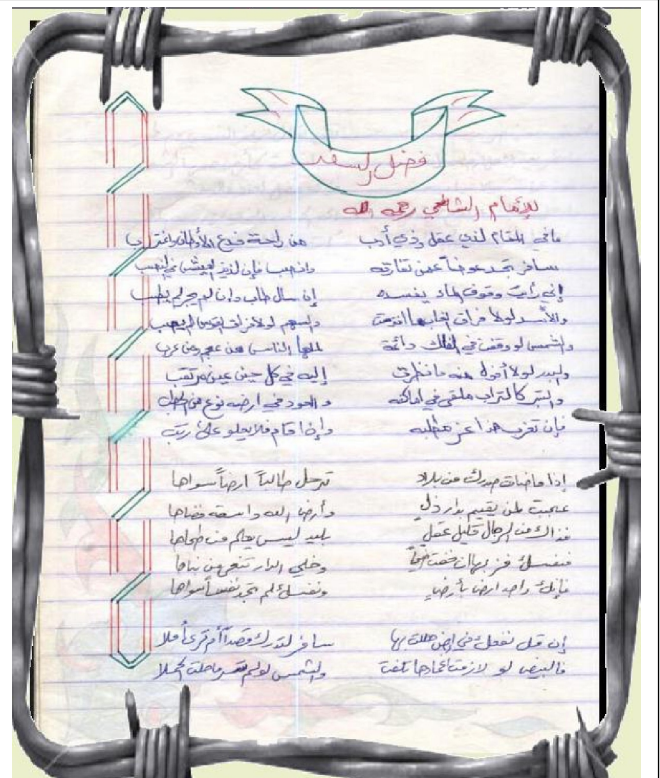 فضل السفر
للإمام الشافعي رحمه الله
ما في المقام لذي عقل وذي أدب من راحة فدع الأوطان واغترب
سافر تجد عوضاً عمن تفارقه وانصب فإن لذيذ العيش في النصب
إني رأيت وقوف الماء يفسده إن سال طاب وان لم يجر لم يطب
والأسد لولا فراق الغاب ما افترست والسهم لولا فراق القوس لم يصب
والشمس لو وقفت في الفلك دائمة لملها الناس من عجم ومن عرب
والبدر لولا أفول منه ما نظرت إليه في كل حين عين مرتقب
والتبر كالتراب ملقى في اماكنه و العود في ارضه نوع من الحطب
فإن تغرب هذا عز مطلبه وإن اقام فلا يعلو على رتب
إذا ما ضاق صدرك من بلاد ترحل طالباً ارضاً سواها
عجبت لمن يقيم بدار ذل وأرض الله واسعة فضاها
فذاك من الرجال قليل عقل بليد ليس يعلم من طحاها
فنفسك فز بها ان خفت ضيماً وخلي الدار تنعي من بناها
فإنك واجد ارضاً بأرض ونفسك لم تجد نفساً سواها
إن قل نفعك في ارض حللت بها سافر لتدرك قصداً أم ترى أملا
فالبيض لو لازمت اغمادها تلفت والشمس لو لم تسر ما حلت الحملا